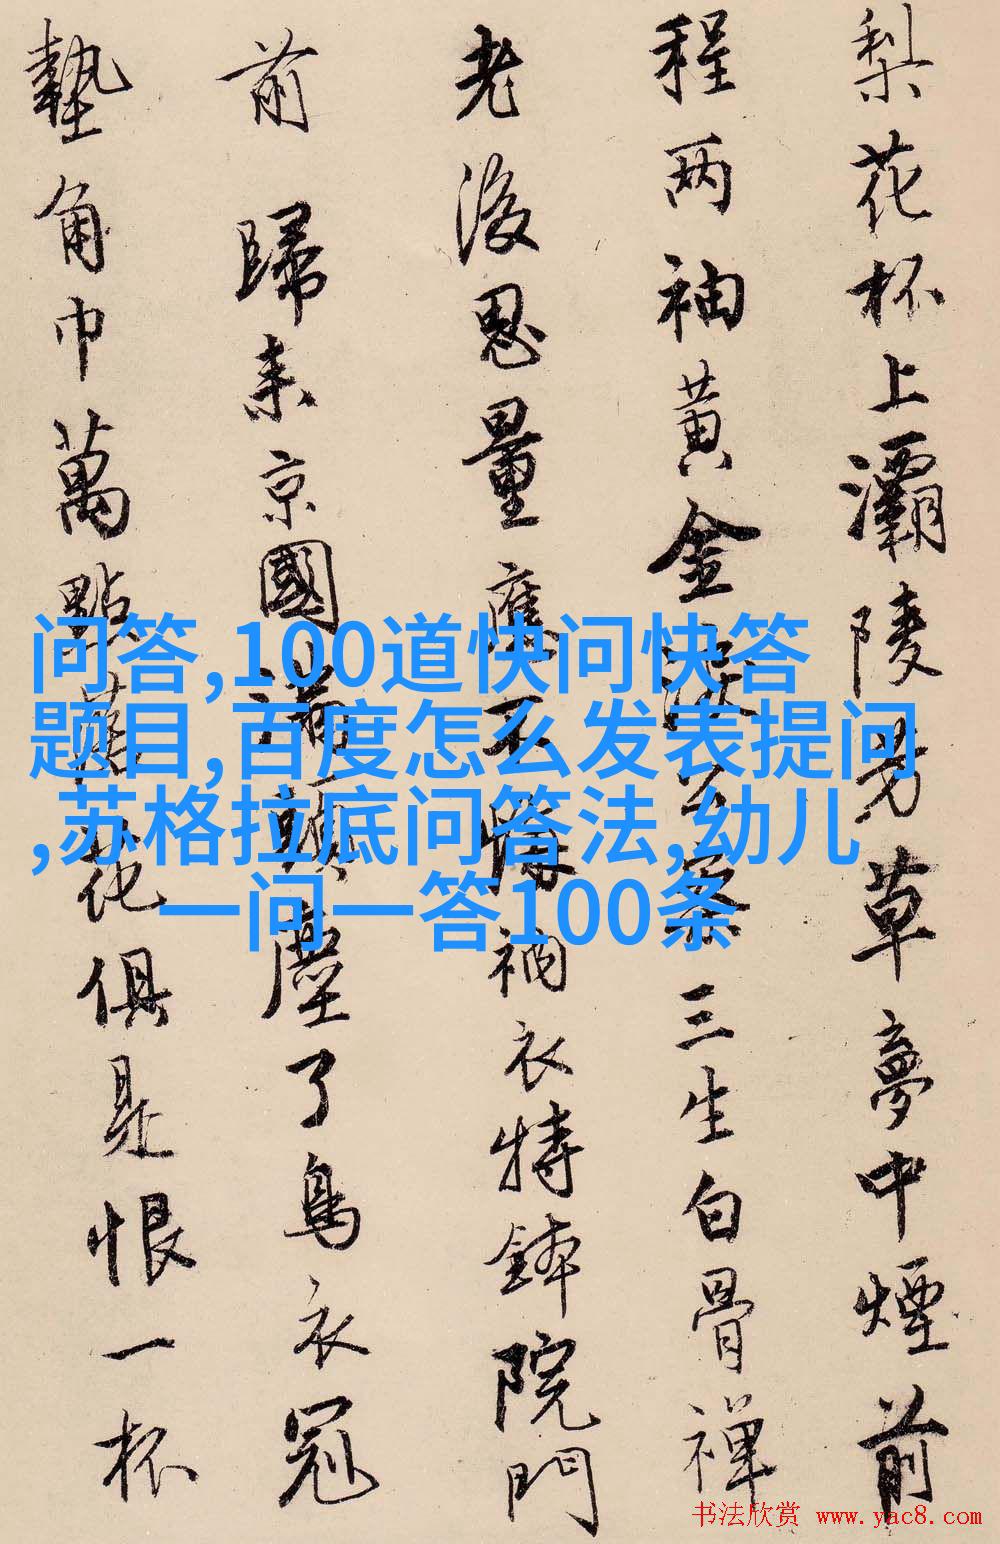 梨花杯上灞陵芳草夢中煙前
程两袖黄金淚公案三生白骨禪
老後思量應不悔衲衣持鉢院門
前 歸来京國滿頭塵了鳥衣冠
墊角巾萬點落花俱是恨一杯
问答,100道快问快答
题目,百度怎么发表提问
,苏格拉底问答法,幼儿
一问一答100条
书法欣赏 www.yac8.com